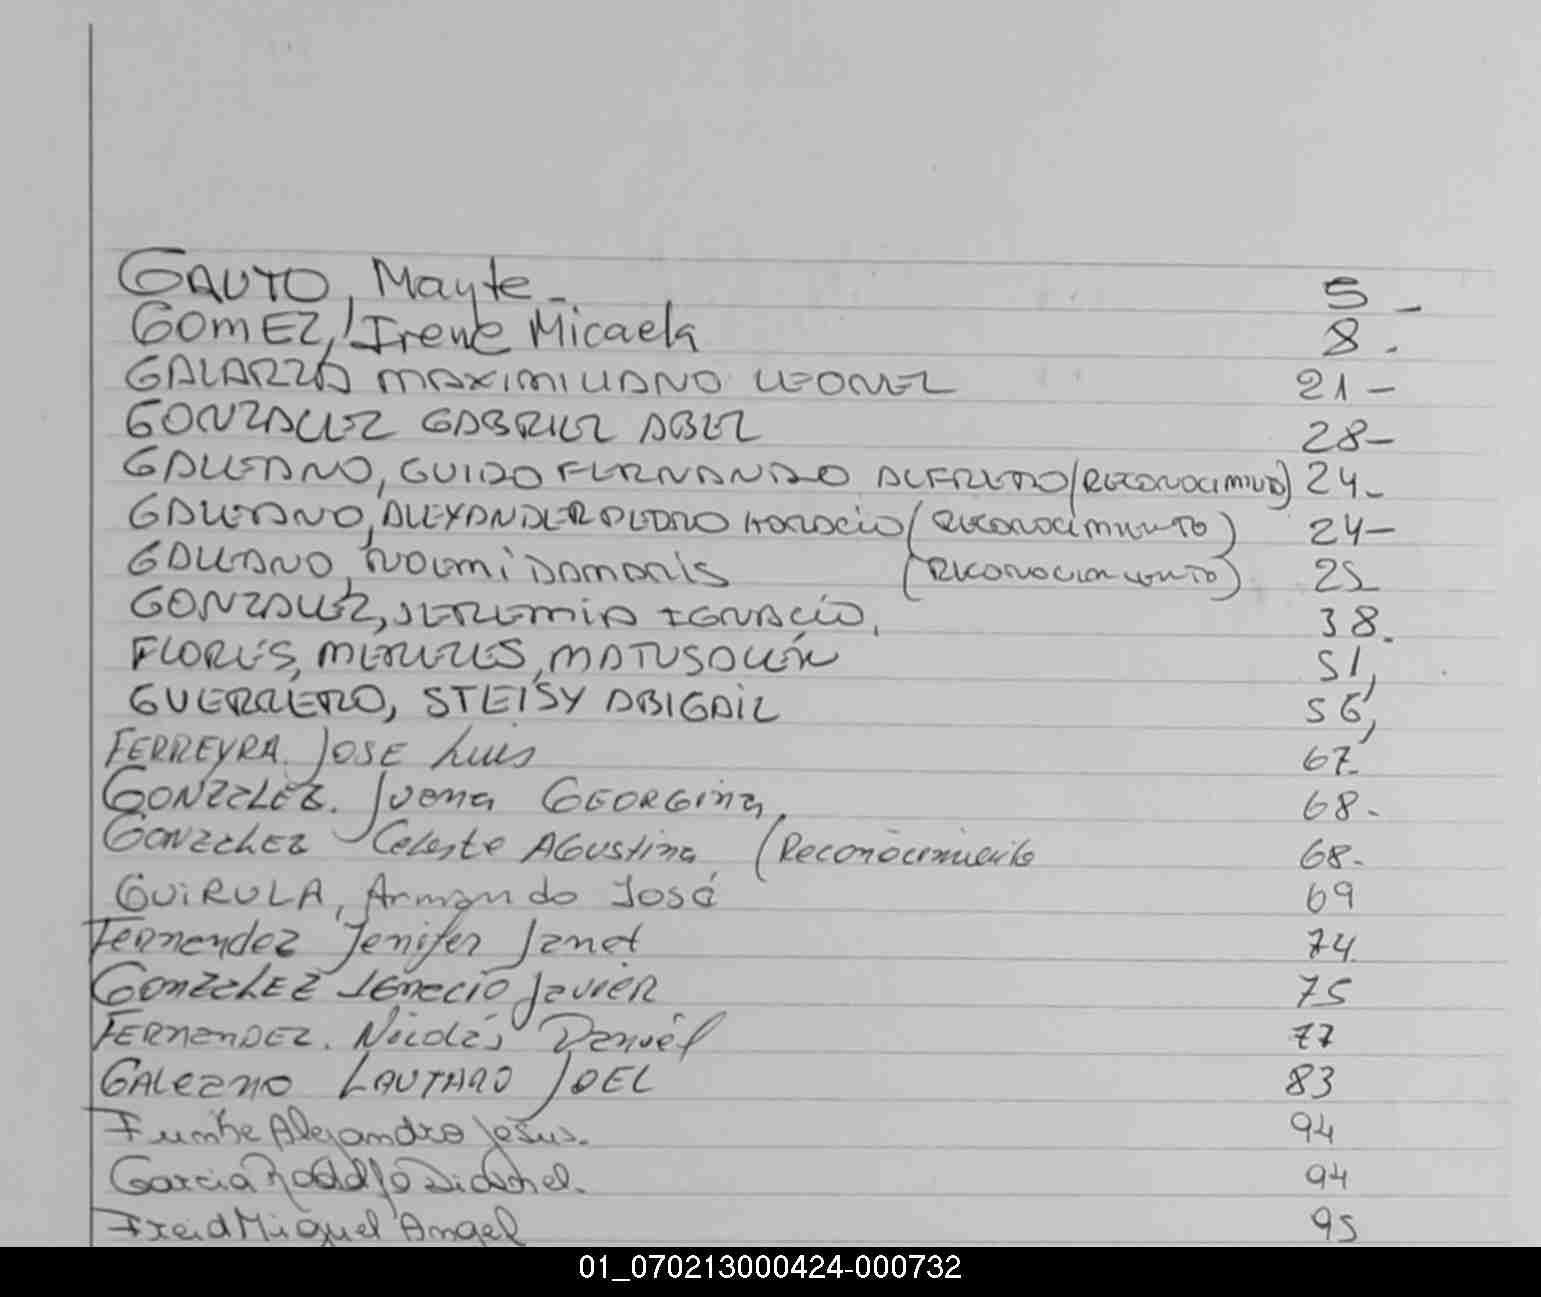 GAUTO, Mayte - 5 -
GOMEZ, Irene Micaela 8 .
GALARZA MAXIMILIANO LEONEL 21 -
GONZALEZ GABRIEL ABEL 28 -
GALEANO, GUIDO FERNANDO ALFREDO (RECONOCIMIENTO) 24 -
GALEANO, ALEXANDER PEDRO HORACIO (RECONOCIMIENTO) 24 -
GALEANO, NOEMI DAMARIS (RECONOCIMIENTO) 25
GONZALEZ, JEREMIA IGNACIO, 38.
FLORES, MERELES, MATUSALÉN 51,
GUERRERO, STEISY ABIGAIL 56,
FERREYRA. JOSE Luis 67.
GONZALEZ. Juana GEORGina, 68 -
GONZALEZ Celeste AGUstina (Reconocimiento 68 -
GUIRULA, Armando José 69
Fernandez Jenifer Janet 74
GONZALEZ IGnacio Javier 75
FERNANDEZ. Nicolás Daniel 77
GALEANO LAUTARO JOEL 83
Alejandro Jesus. 94
Garcia Rodolfo 94
Freid Miguel Angel 95
01_070213000424-000732